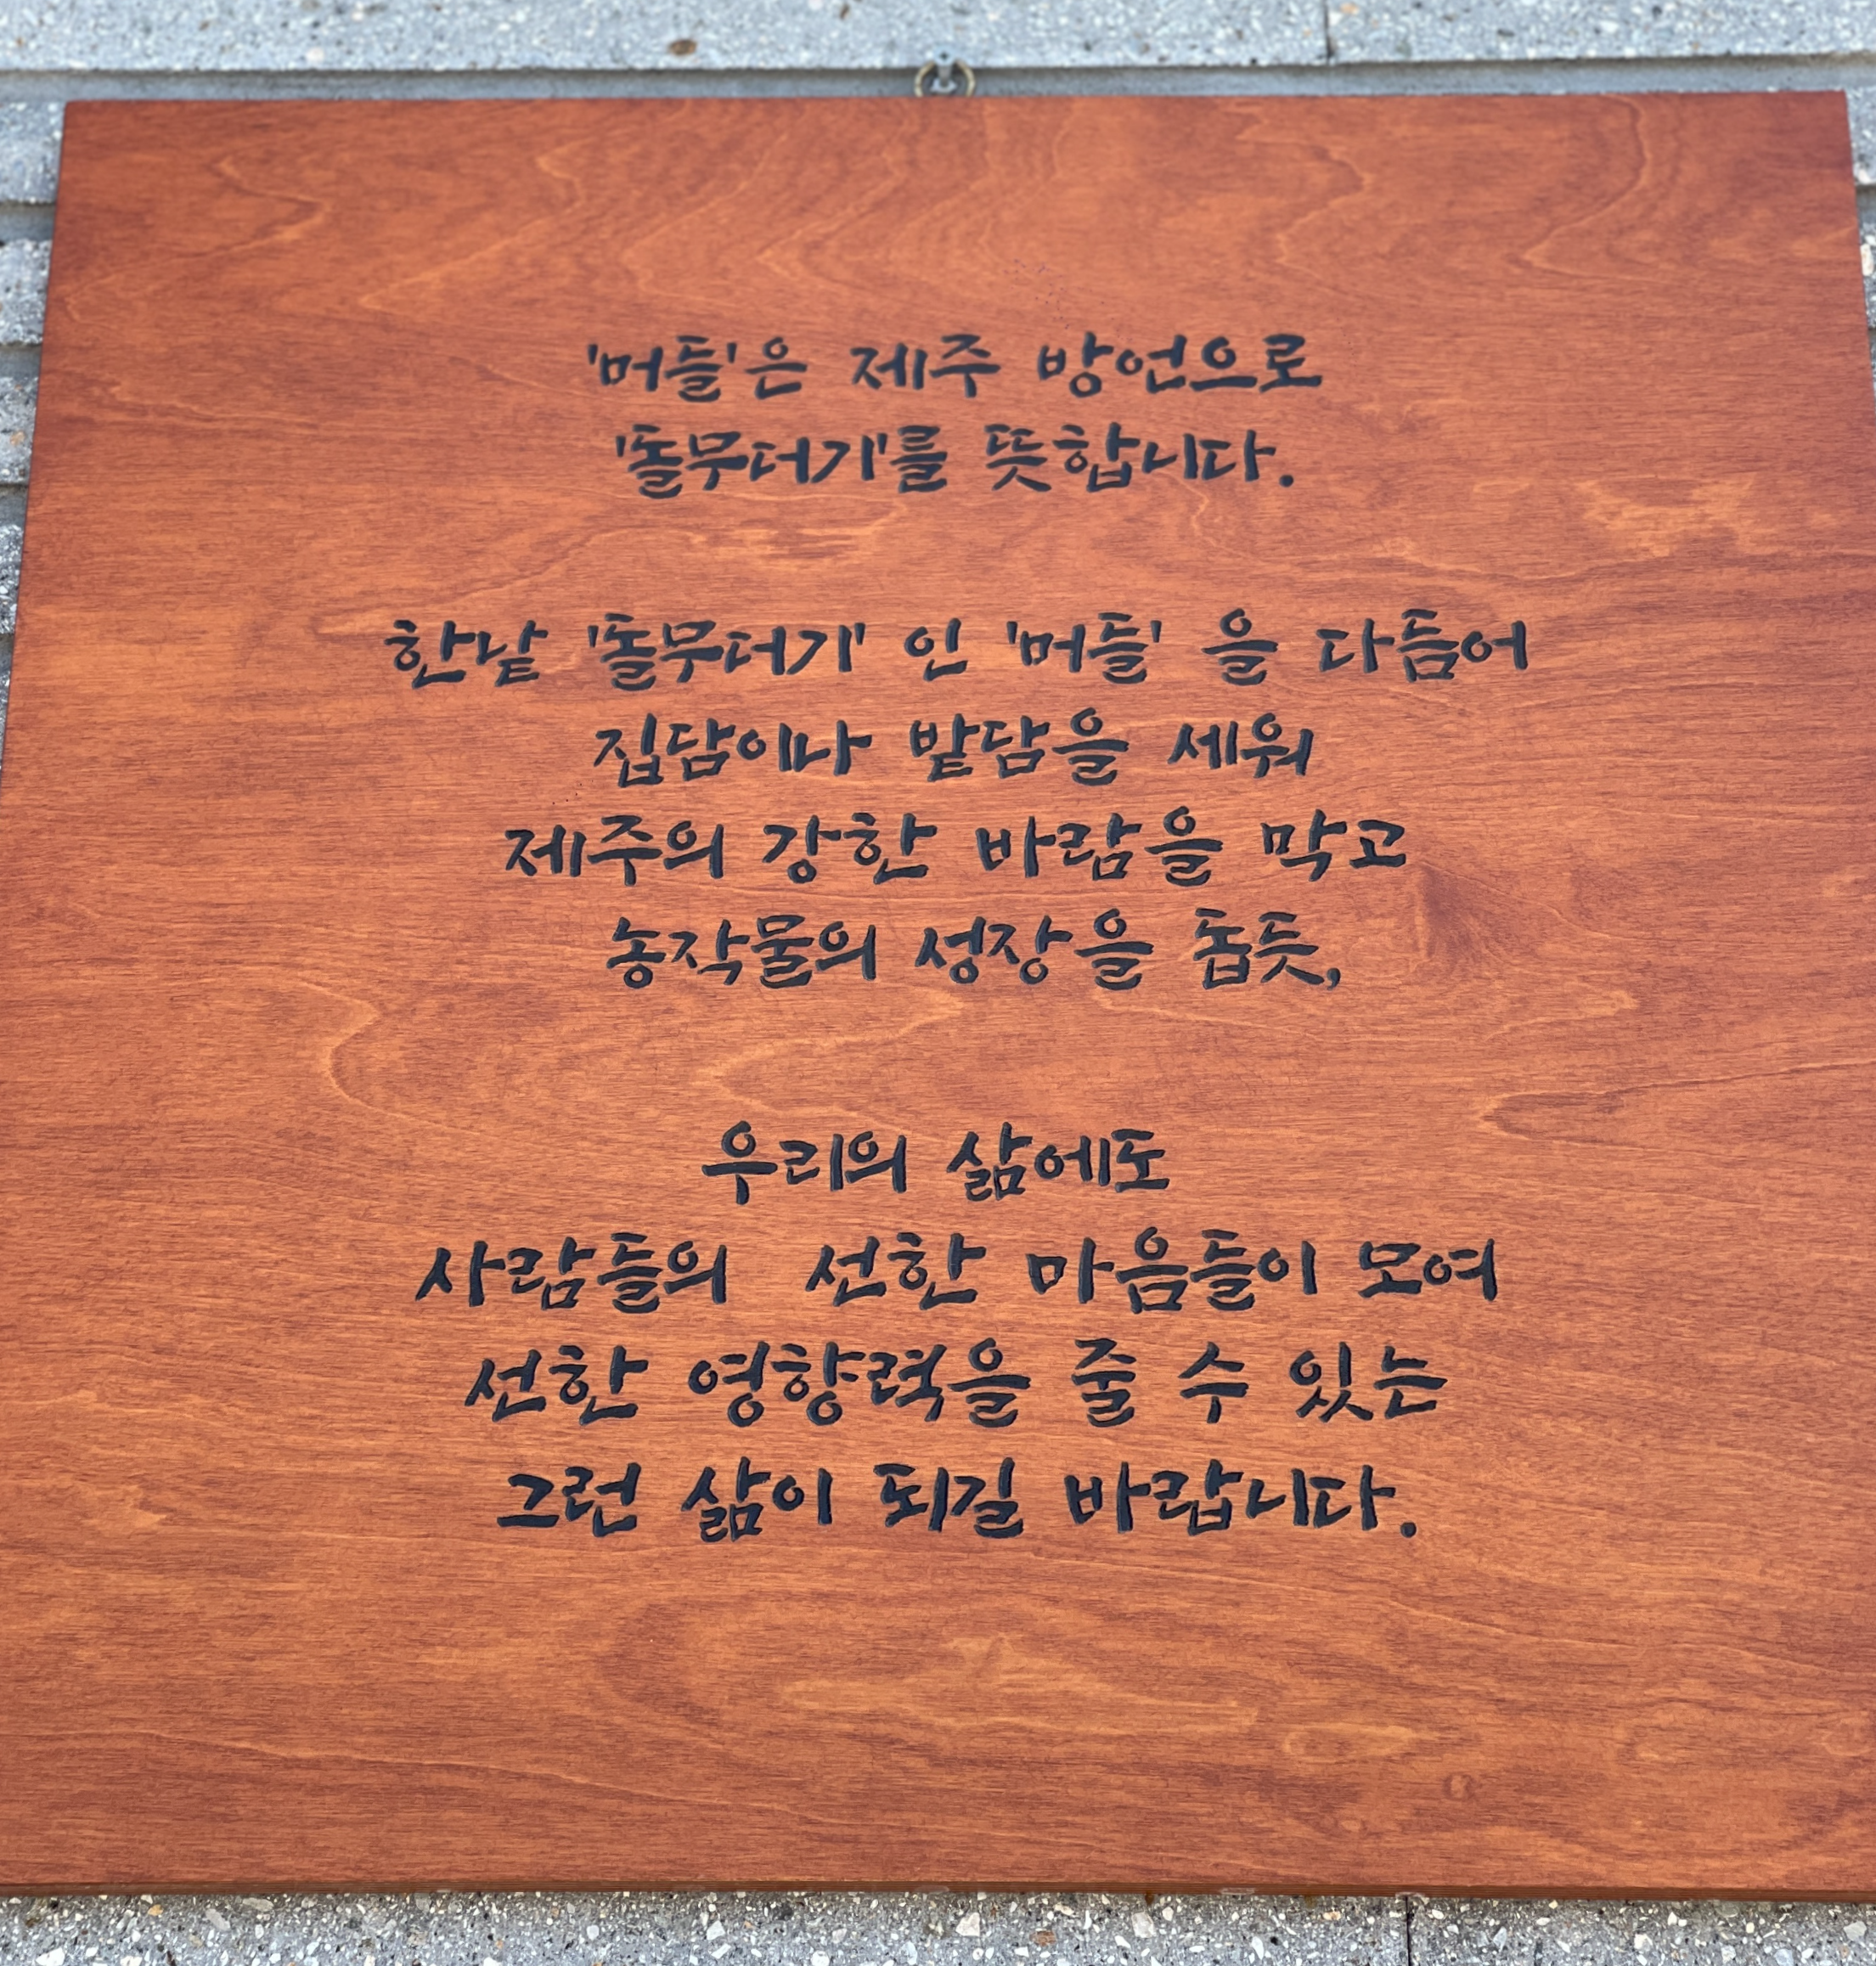 '머들'은 제주 방언으로
'돌무더기'를 뜻합니다.
한낱 '돌무더기' 인 '머들' 을 다듬어
집담이나 밭담을 세워
제주의 강한 바람을 막고
농작물의 성장을 돕듯,
우리의 삶에도
사람들의 선한 마음들이 모여
선한 영향력을 줄 수 있는
그런 삶이 되길 바랍니다.